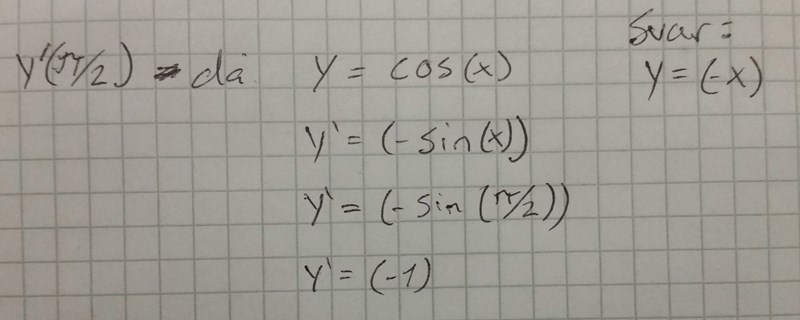 y'(π/2) då y = cos(x)
y' = (-sin(x))
y' = (-sin(π/2))
y' = (-1)
Svar =
y = (-x)